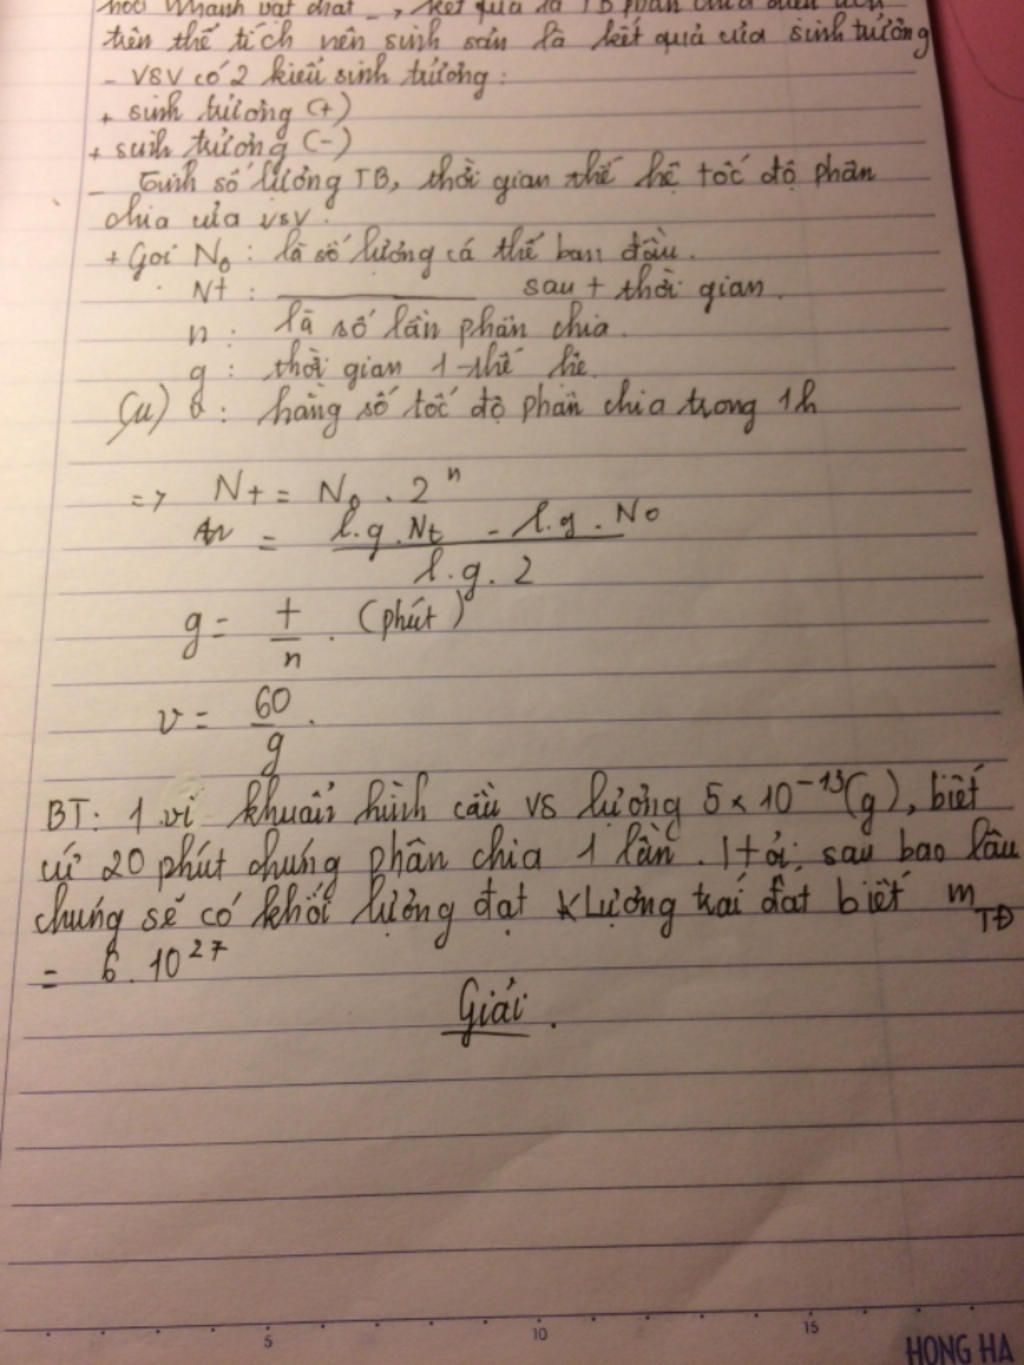 trên thế tích nên sinh sản là kết quả của sinh trưởng
- VSV có 2 kiểu sinh trưởng:
+ sinh trưởng (+)
+ sinh trưởng (-)
- Tính số lượng TB, thời gian thế hệ tốc độ phân
chia của VSV.
+ Gọi N₀ : là số lượng cá thể ban đầu.
Nt : ________ sau t thời gian.
n : là số lần phân chia.
g : thời gian 1 thế hệ.
(u) v : hằng số tốc độ phân chia trong 1h
=> Nt = N₀ . 2ⁿ
n = (l.g.Nt - l.g.N₀) / l.g.2
g = t/n . (phút)
v = 60/g .
BT: 1 vi khuẩn hình cầu vs lượng 5 x 10⁻¹³(g), biết
cứ 20 phút chúng phân chia 1 lần. Hỏi sau bao lâu
chúng sẽ có khối lượng đạt KLượng trái đất biết mTĐ
= 6.10²⁷
Giải.
5 10 15
HONG HA